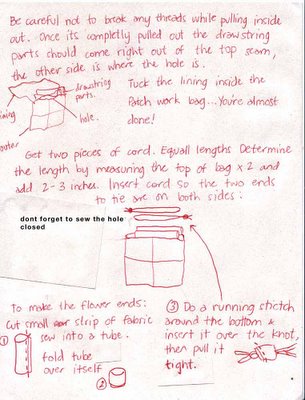 Be careful not to break any threads while pulling inside
out. Once its completly pulled out the drawstring
parts should come right out of the top seam,
the other side is where the hole is.
drawstring
parts.
hole.
Tuck the lining inside the
Patch work bag... You're almost
done!
Get two pieces of cord. Equall lengths Determine
the length by measuring the top of bag x 2 and
add 2-3 inches. Insert cord so the two ends
to tie are on both sides:
dont forget to sew the hole
closed
To make the flower ends:
Cut small strip of fabric
① sew into a tube.
fold tube
over itself
②
③ Do a running stictch
around the bottom &
insert it over the knot,
then pull it
tight.